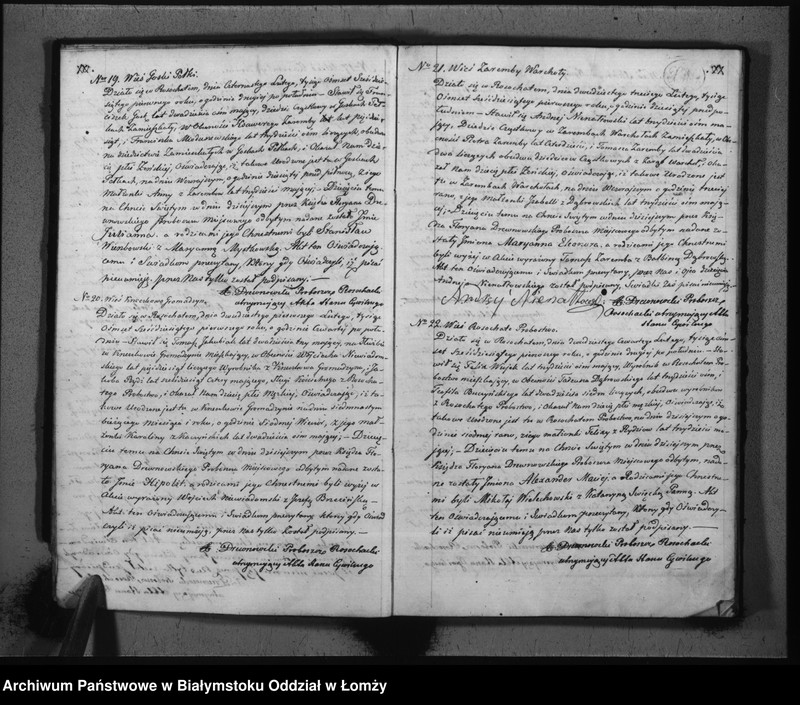 77.
Nro 19. Wieś Jośki Petki.
Działo się w Rosochatem, dnia Czternastego Lutego, tysiąc Ośmset Sześćdzie-
siątego pierwszego roku, o godzinie drugiej po południu — Stawił się
lat dwadzieścia ośm mający, dziedzic Cząstkowy w
zamieszkały, w Obecności Xawerego Zaremby lat pięćdzie-
siąt, i Franciszka lat trzydzieści ośm liczących, obudwu
na dziedzictwie Zamieszkałych w Petkach, i Okazał Nam dziecię
płci Żeńskiej, Oświadczając, iż takowe Urodzone jest tu w
Petkach, na dniu Wczorajszym, o godzinie dziesiątej przed północą, z jego
Małżonki Anny z Zarembów lat trzydzieści mającej. — Dziecięciu temu
na Chrzcie Świętym w dniu dzisiejszym przez Księdza Floryana Drew-
nowskiego Proboszcza Miejscowego odbytym nadane zostało Imie
Julianna, a rodzicami jego Chrzestnemi byli Stanisław
z Maryanną Akt ten Oświadczają-
cemu i Świadkom przeczytany, Który gdy Oświadczyli, iż pisać
nieumieją, przez Nas tylko został podpisany. —
X. Drewnowski Proboszcz Rosochacki
utrzymujący Akta Stanu Cywilnego
Nro 20. Wieś Krzeczkowo Gromadzyn.
Działo się w Rosochatem, dnia dwudziestego pierwszego Lutego, tysiąc
Ośmset Sześćdziesiątego pierwszego roku, o godzinie Czwartej po połu-
dniu — Stawił się Tomasz Jakubiak lat dwadzieścia trzy mający, na służbie
w Gromadzynie mieszkający, w Obecności Wojciecha Niewiadom-
skiego lat pięćdziesiąt liczącego Wyrobnika z Gromadzyna, i Ja-
kóba lat Cztery mającego, Sługi Kościelnego z Rosocha-
tego Probostwa, i Okazał Nam dziecię płci Męzkiej, Oświadczając, iż ta-
kowe Urodzone jest tu w Gromadzynie na dniu siedmnastym
bieżącego miesiąca i roku, o godzinie siódmej Wieczór, z jego mał-
żonki Karoliny z lat dwadzieścia ośm mającej. — Dziecię-
ciu temu na Chrzcie Świętym w dniu dzisiejszym przez Księdza Flo-
ryana Drewnowskiego Proboszcza Miejscowego odbytym nadane zosta-
ło Imie Hipolit, a rodzicami jego Chrzestnemi byli wyżej w
Akcie wyrażony Wojciech Niewiadomski z Józefą Brzezińską —
Akt ten Oświadczającemu i Świadkom przeczytany, którzy gdy Oświad-
czyli iż pisać nieumieją, przez Nas tylko został podpisany. —
X. Drewnowski Proboszcz Rosochacki
utrzymujący Akta Stanu Cywilnego
77.
Nro 21. Wieś Zaremby Warchoły.
Działo się w Rosochatem, dnia dwudziestego trzeciego Lutego, tysiąc
Ośmset sześćdziesiątego pierwszego roku, o godzinie dziesiątej przed po-
łudniem — Stawił się Andrzej Nienałtowski lat trzydzieści ośm ma-
jący, Dziedzic Cząstkowy w Zarembach Warchołach Zamieszkały, w Obe-
cności Piotra Zaremby lat Czterdzieści, i Tomasza Zaremby lat dwadzieścia
dwa liczących obudwu dziedziców Cząstkowych z Zaręb Warchoł, i Oka-
zał Nam dziecię płci Żeńskiej, Oświadczając, iż takowe Urodzone jest
tu w Zarembach Warchołach, na dniu Wczorajszym o godzinie trzeciej
rano, z jego Małżonki Izabelli z Dąbrowskich lat trzydzieści ośm mają-
cej. — Dziecięciu temu na Chrzcie Świętym w dniu dzisiejszym przez Księ-
dza Floryana Drewnowskiego Proboszcza Miejscowego odbytym nadane zo-
stały Imiona Maryanna Eleonora, a rodzicami jego Chrzestnemi
byli wyżej w Akcie wyrażony Tomasz Zaremba z Balbiną Dąbrowską.
Akt ten Oświadczającemu i Świadkom przeczytany, przez Nas i Ojca dziecięcia
Andrzeja Nienałtowskiego został podpisany, Świadki zaś pisać nieumieją. —
Andrzy Nienałtowski
X. Drewnowski Proboszcz
Rosochacki utrzymujący Akta
Stanu Cywilnego
Nro 22. Wieś Rosochate Probostwo.
Działo się w Rosochatem, dnia dwudziestego Czwartego Lutego, tysiąc Ośm-
set Sześćdziesiątego pierwszego roku, o godzinie drugiej po południu — Sta-
wił się Felix lat trzydzieści ośm mający, Wyrobnik w Rosochatem Pro-
bostwie mieszkający, w Obecności Tadeusza Dąbrowskiego lat trzydzieści ośm, i
Teofila lat dwadzieścia siedm liczących, obudwu wyrobników
z Rosochatego Probostwa, i Okazał Nam dziecię płci męzkiej, Oświadczając, iż
takowe Urodzone jest tu w Rosochatem Probostwie, na dniu dzisiejszym o go-
dzinie siódmej rano, z jego małżonki lat trzydzieści ma-
jącej. — Dziecięciu temu na Chrzcie Świętym w dniu dzisiejszym przez
Księdza Floryana Drewnowskiego Proboszcza Miejscowego odbytym, nada-
ne zostały Imiona Alexander Maciej, a Rodzicami jego Chrzestne-
mi byli Mikołaj z Katarzyną Panną. Akt
ten Oświadczającemu i Świadkom przeczytany, Który gdy Oświadczy-
li iż pisać nieumieją, przez Nas tylko został podpisany. —
X. Drewnowski Proboszcz Rosochacki
utrzymujący Akta Stanu Cywilnego
Archiwum Państwowe w Białymstoku Oddział w Łomży